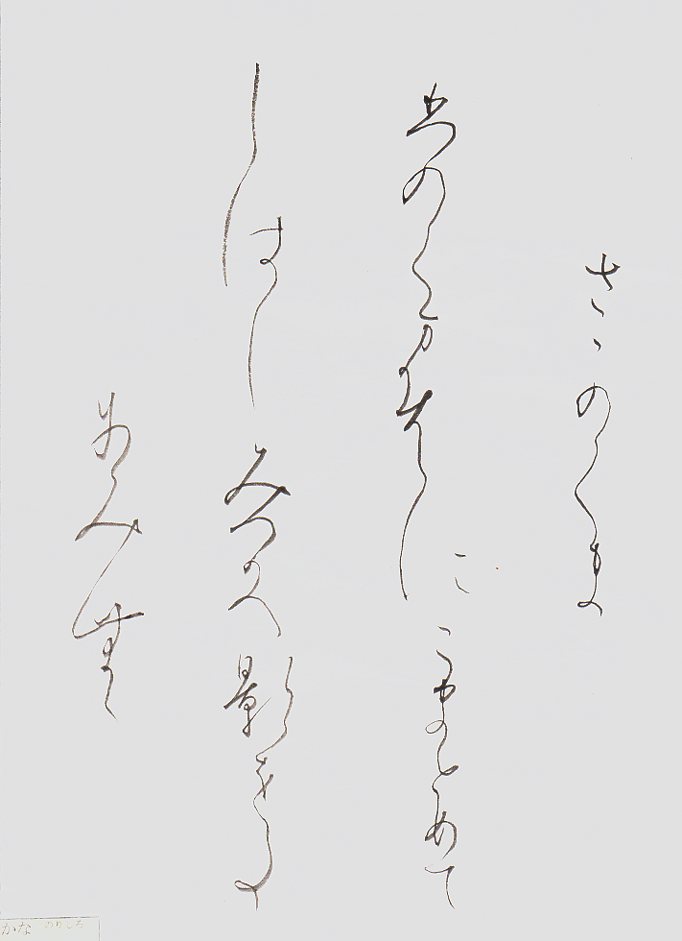 さゝのくま
ひのくまかはにこまとめて
しはしみつかへ影をた
にみむ
かな のりしろ